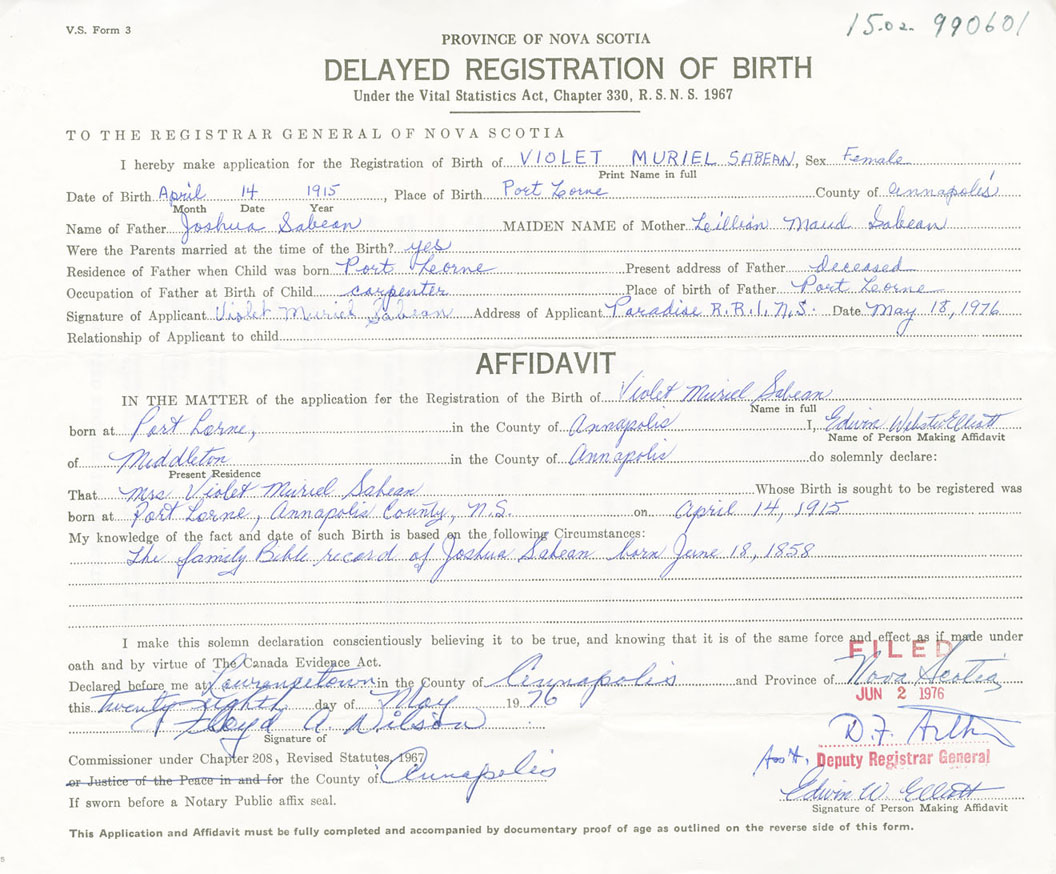 V.S. Form 3
15-02- 990601
PROVINCE OF NOVA SCOTIA
DELAYED REGISTRATION OF BIRTH
Under the Vital Statistics Act, Chapter 330, R.S.N.S. 1967
TO THE REGISTRAR GENERAL OF NOVA SCOTIA
I hereby make application for the Registration of Birth of VIOLET MURIEL SABEAN, Sex Female
Print Name in full
Date of Birth April 14 1915, Place of Birth Port Lorne County of Annapolis
Month Date Year
Name of Father Joshua Sabean MAIDEN NAME of Mother Leillian Maud Sabean
Were the Parents married at the time of the Birth? yes
Residence of Father when Child was born Port Lorne Present address of Father deceased
Occupation of Father at Birth of Child carpenter Place of birth of Father Port Lorne
Signature of Applicant Violet Muriel Sabean Address of Applicant Paradise R.R.1, N.S. Date May 18, 1976
Relationship of Applicant to child
AFFIDAVIT
IN THE MATTER of the application for the Registration of the Birth of Violet Muriel Sabean
Name in full
born at Port Lorne, in the County of Annapolis I, Edwin Webster Elliott
Name of Person Making Affidavit
of Middleton in the County of Annapolis do solemnly declare:
Present Residence
That Mrs Violet Muriel Sabean Whose Birth is sought to be registered was
born at Port Lorne, Annapolis County, N.S. on April 14, 1915
My knowledge of the fact and date of such Birth is based on the following Circumstances:
The family Bible record of Joshua Sabean born June 18, 1858
I make this solemn declaration conscientiously believing it to be true, and knowing that it is of the same force and effect as if made under
oath and by virtue of The Canada Evidence Act.
FILED
Declared before me at Lawrencetown in the County of Annapolis and Province of Nova Scotia
JUN 2 1976
this twenty eighth day of May 1976
Floyd A Wilson
Signature of
D.F.
Commissioner under Chapter 208, Revised Statutes, 1967
Ass't. Deputy Registrar General
or Justice of the Peace in and for the County of Annapolis
Edwin W. Elliott
If sworn before a Notary Public affix seal.
Signature of Person Making Affidavit
This Application and Affidavit must be fully completed and accompanied by documentary proof of age as outlined on the reverse side of this form.